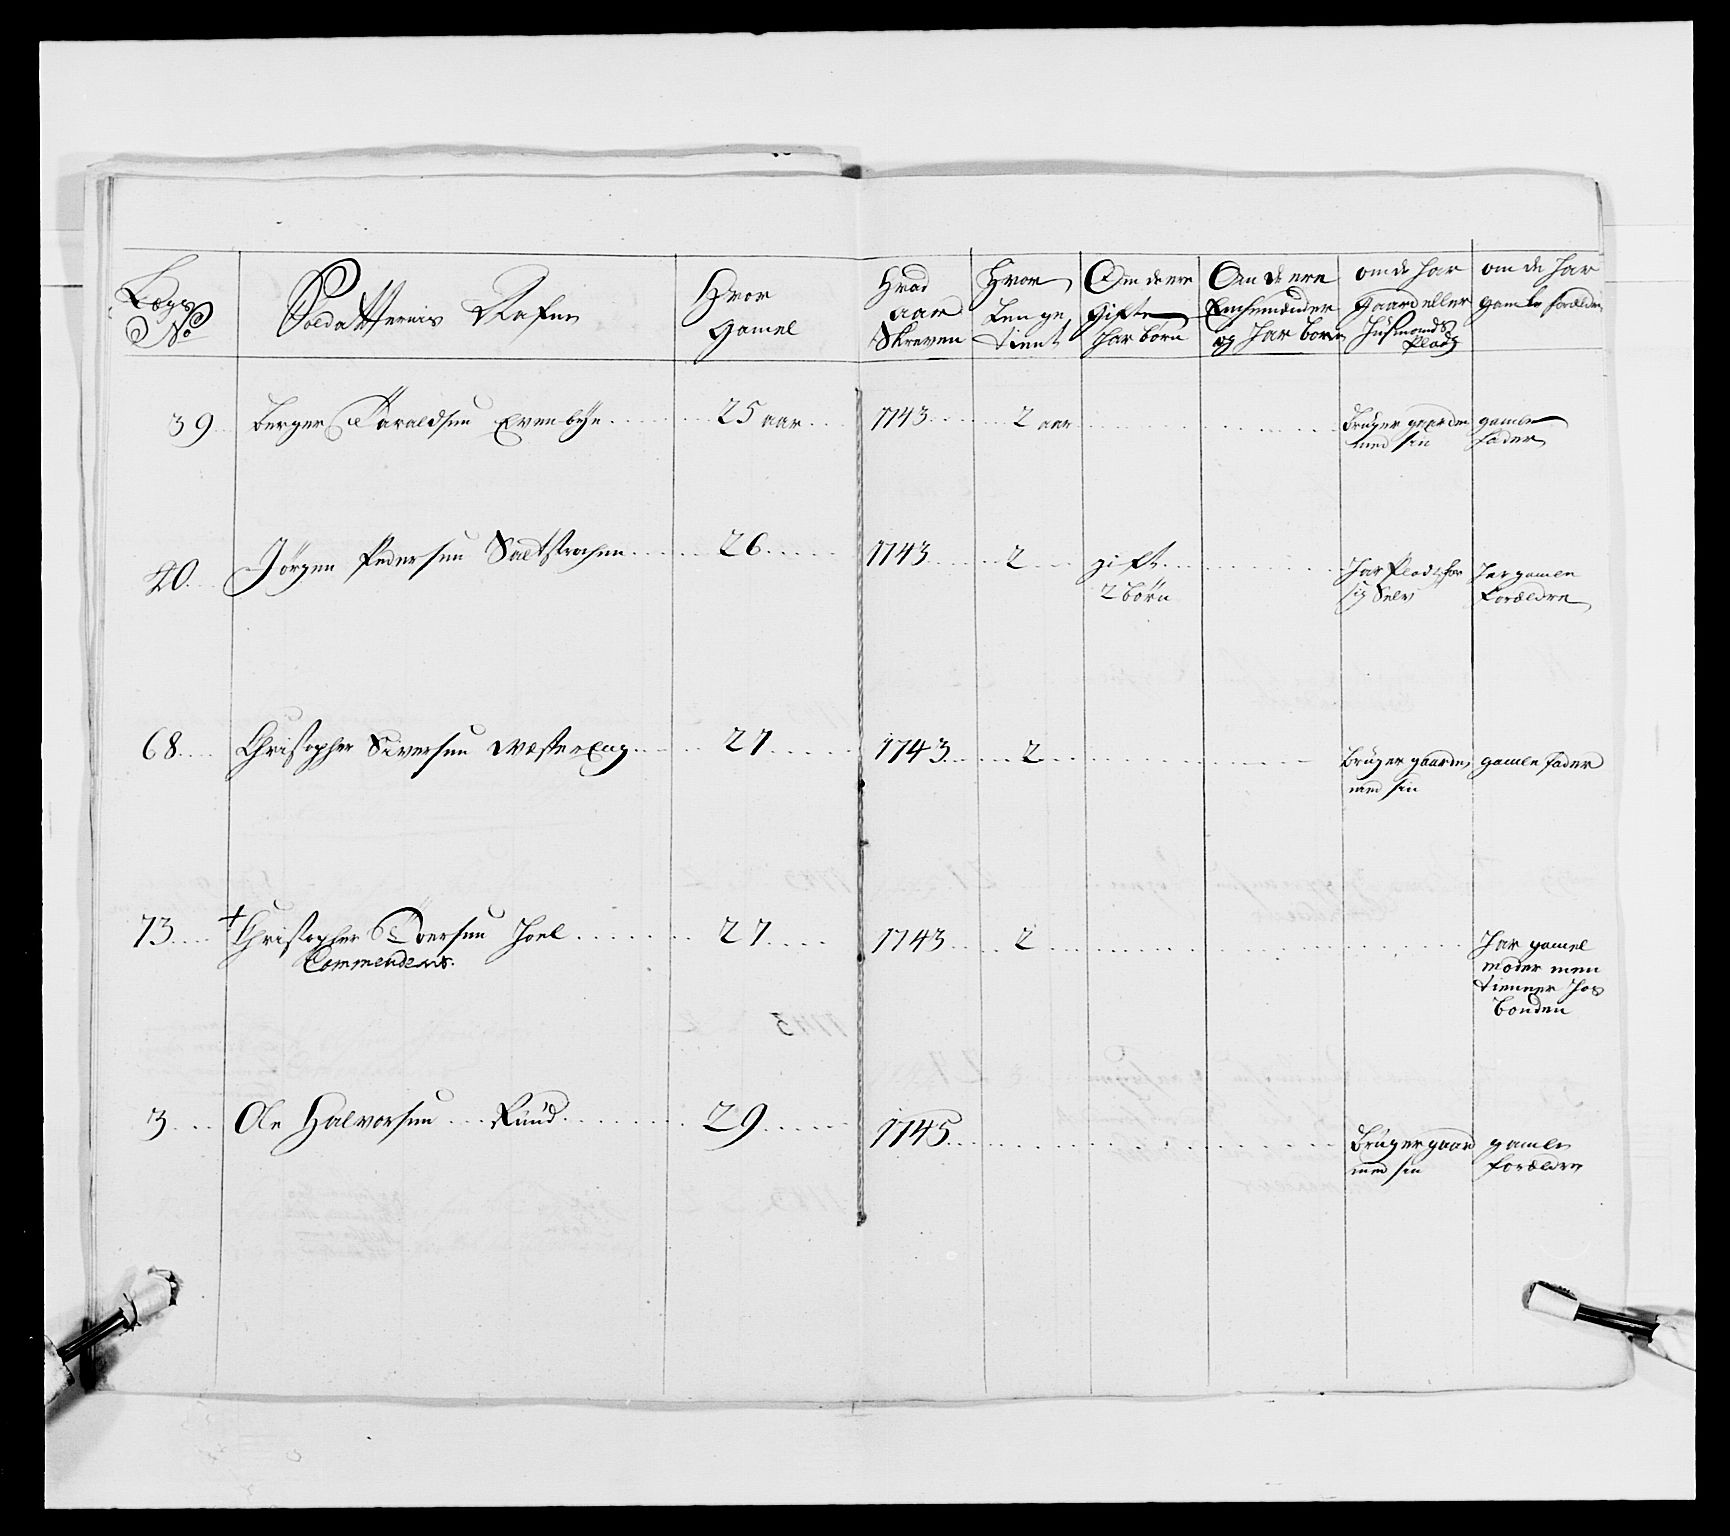 Lægs No | Soldatternis Nafne | Hvor gamel | Hvad aar Skreven | Hvor Lenge tient | Om de ere gifte har børn | Om de ere Enchemænder og har børn | om de har gaard eller Husmands Plads | om de har gamle forældre
39 | Berger Haraldsen Evenbye | 25 aar | 1743 | 2 aar | | | Bruger gaarden med sin | gamle fader
40 | Jörgen Pedersen Saltstrachen | 26 | 1743 | 2 | gift 2 børn | | har Plads for sig Selv | har gamle Forældre
68 | Christopher Siversen Wester Eng | 27 | 1743 | 2 | | | Bruger gaarden med sin | gamle fader
73 | † Christopher Iversen Hoel Commenderes | 27 | 1743 | 2 | | | | har gamel moder men tienner hos bonden
3 | Ole Halvorsen Ruud | 29 | 1745 | | | | Bruger gaard med sin | gamle forældre